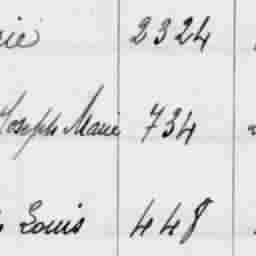 2324
Joseph Marie 734
Louis 448